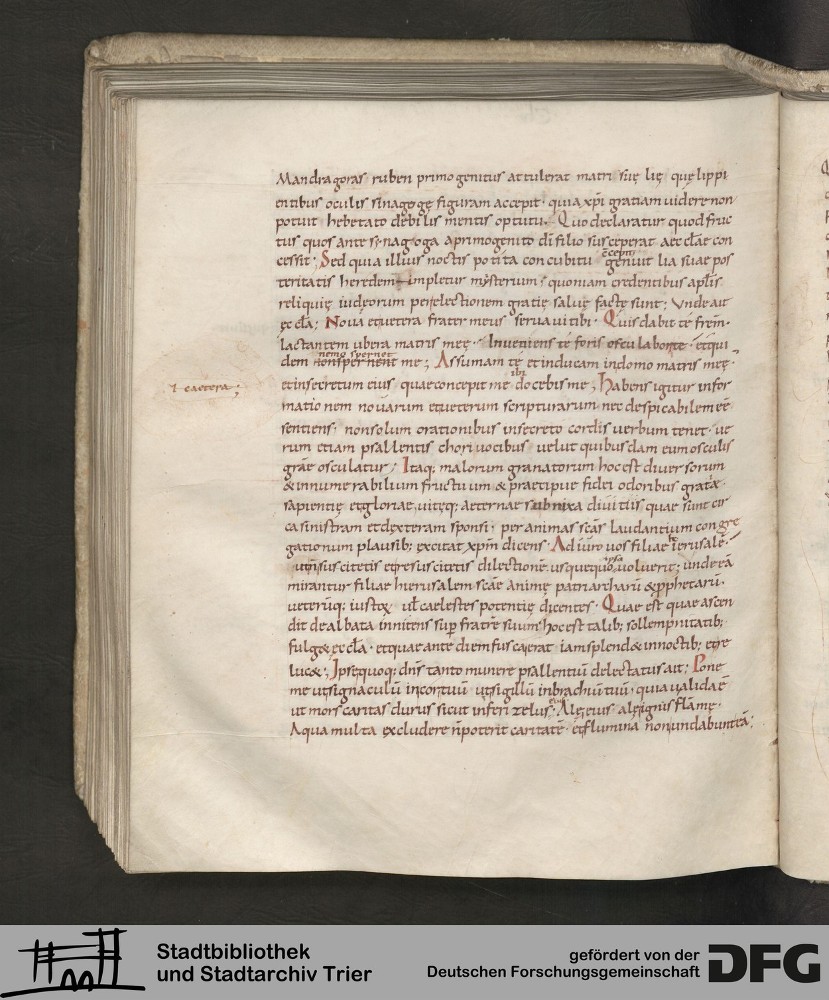 Mandragoras ruben primogenitus attulerat matri suę lię quę lippi
entibus oculis sinagogę figuram accepit · quia xp̄i gratiam uidere non
potuit hebetato debilis mentis optutu · Quo declaratur quod fruc
tus quos ante sinagoga a primogenito dī filio susceperat aeccl̄ae con
cessit · Sed quia illius noctis potita concubitu genuit lia suae pos
teritatis heredem impletur mysterium · quoniam credentibus apl̄is
reliquię iudeorum per electionem gratię saluę factę sunt ; Vnde ait
ęccl̄a ; Noua et uetera frater meus seruaui tibi · Quis dabit te fr̄em ·
lactantem ubera matris meę · Inueniens te foris osculabor te · et qui
nemo spernet
dem non spernent me ; Assumam te et inducam in domo matris meę ·
ł caetera ;
ibi
et in secretum eius quae concepit me docebis me ; Habens igitur infor
mationem nouarum et ueterum scripturarum · nec despicabilem eē
sentiens · non solum orationibus in secreto cordis uerbum tenet · ue
rum etiam psallentis chori uocibus uelut quibusdam eum osculis
grāe osculatur ; Itaq; malorum granatorum hoc est diuersorum
& innumerabilium fructuum & praecipue fidei odoribus grata ·
sapientię et gloriae, uitęq; aeternae subnixa diuitiis quae sunt cir
ca sinistram et dexteram sponsi · per animas sc̄as laudantium congre
gationum plausib; excitat xp̄m dicens · Adiuro uos filiae ierusalē ·
ipsa
suscitetis et resuscitetis dilectionē usquequo uoluerit ; unde eā
mirantur filiae hierusalem sc̄ae animę patriarcharū & p̄phetarū ·
ueterūq; iustoꝝ ul̄ caelestes potentię dicentes · Quae est quae ascen
dit dealbata innitens sup̄ fratrē suum · hoc est talib; sollempnitatib;
fulg& ęccl̄a · et quae ante diem fuscaerat iam splend& in noctib; et re
luc& ; Ipseq̄uoq; dn̄s tanto munere psallentiū delectatus ait ; Pone
me ut signaculū in cor tuū ut sigillū in brachiū tuū · quia ualida ē
ut mors caritas durus sicut inferi zelus · Alę eius alę ignis flāmę ·
Aqua multa excludere n̄ poterit caritatē · et flumina non inundabunt eā ;
Stadtbibliothek
und Stadtarchiv Trier
gefördert von der
Deutschen Forschungsgemeinschaft
DFG